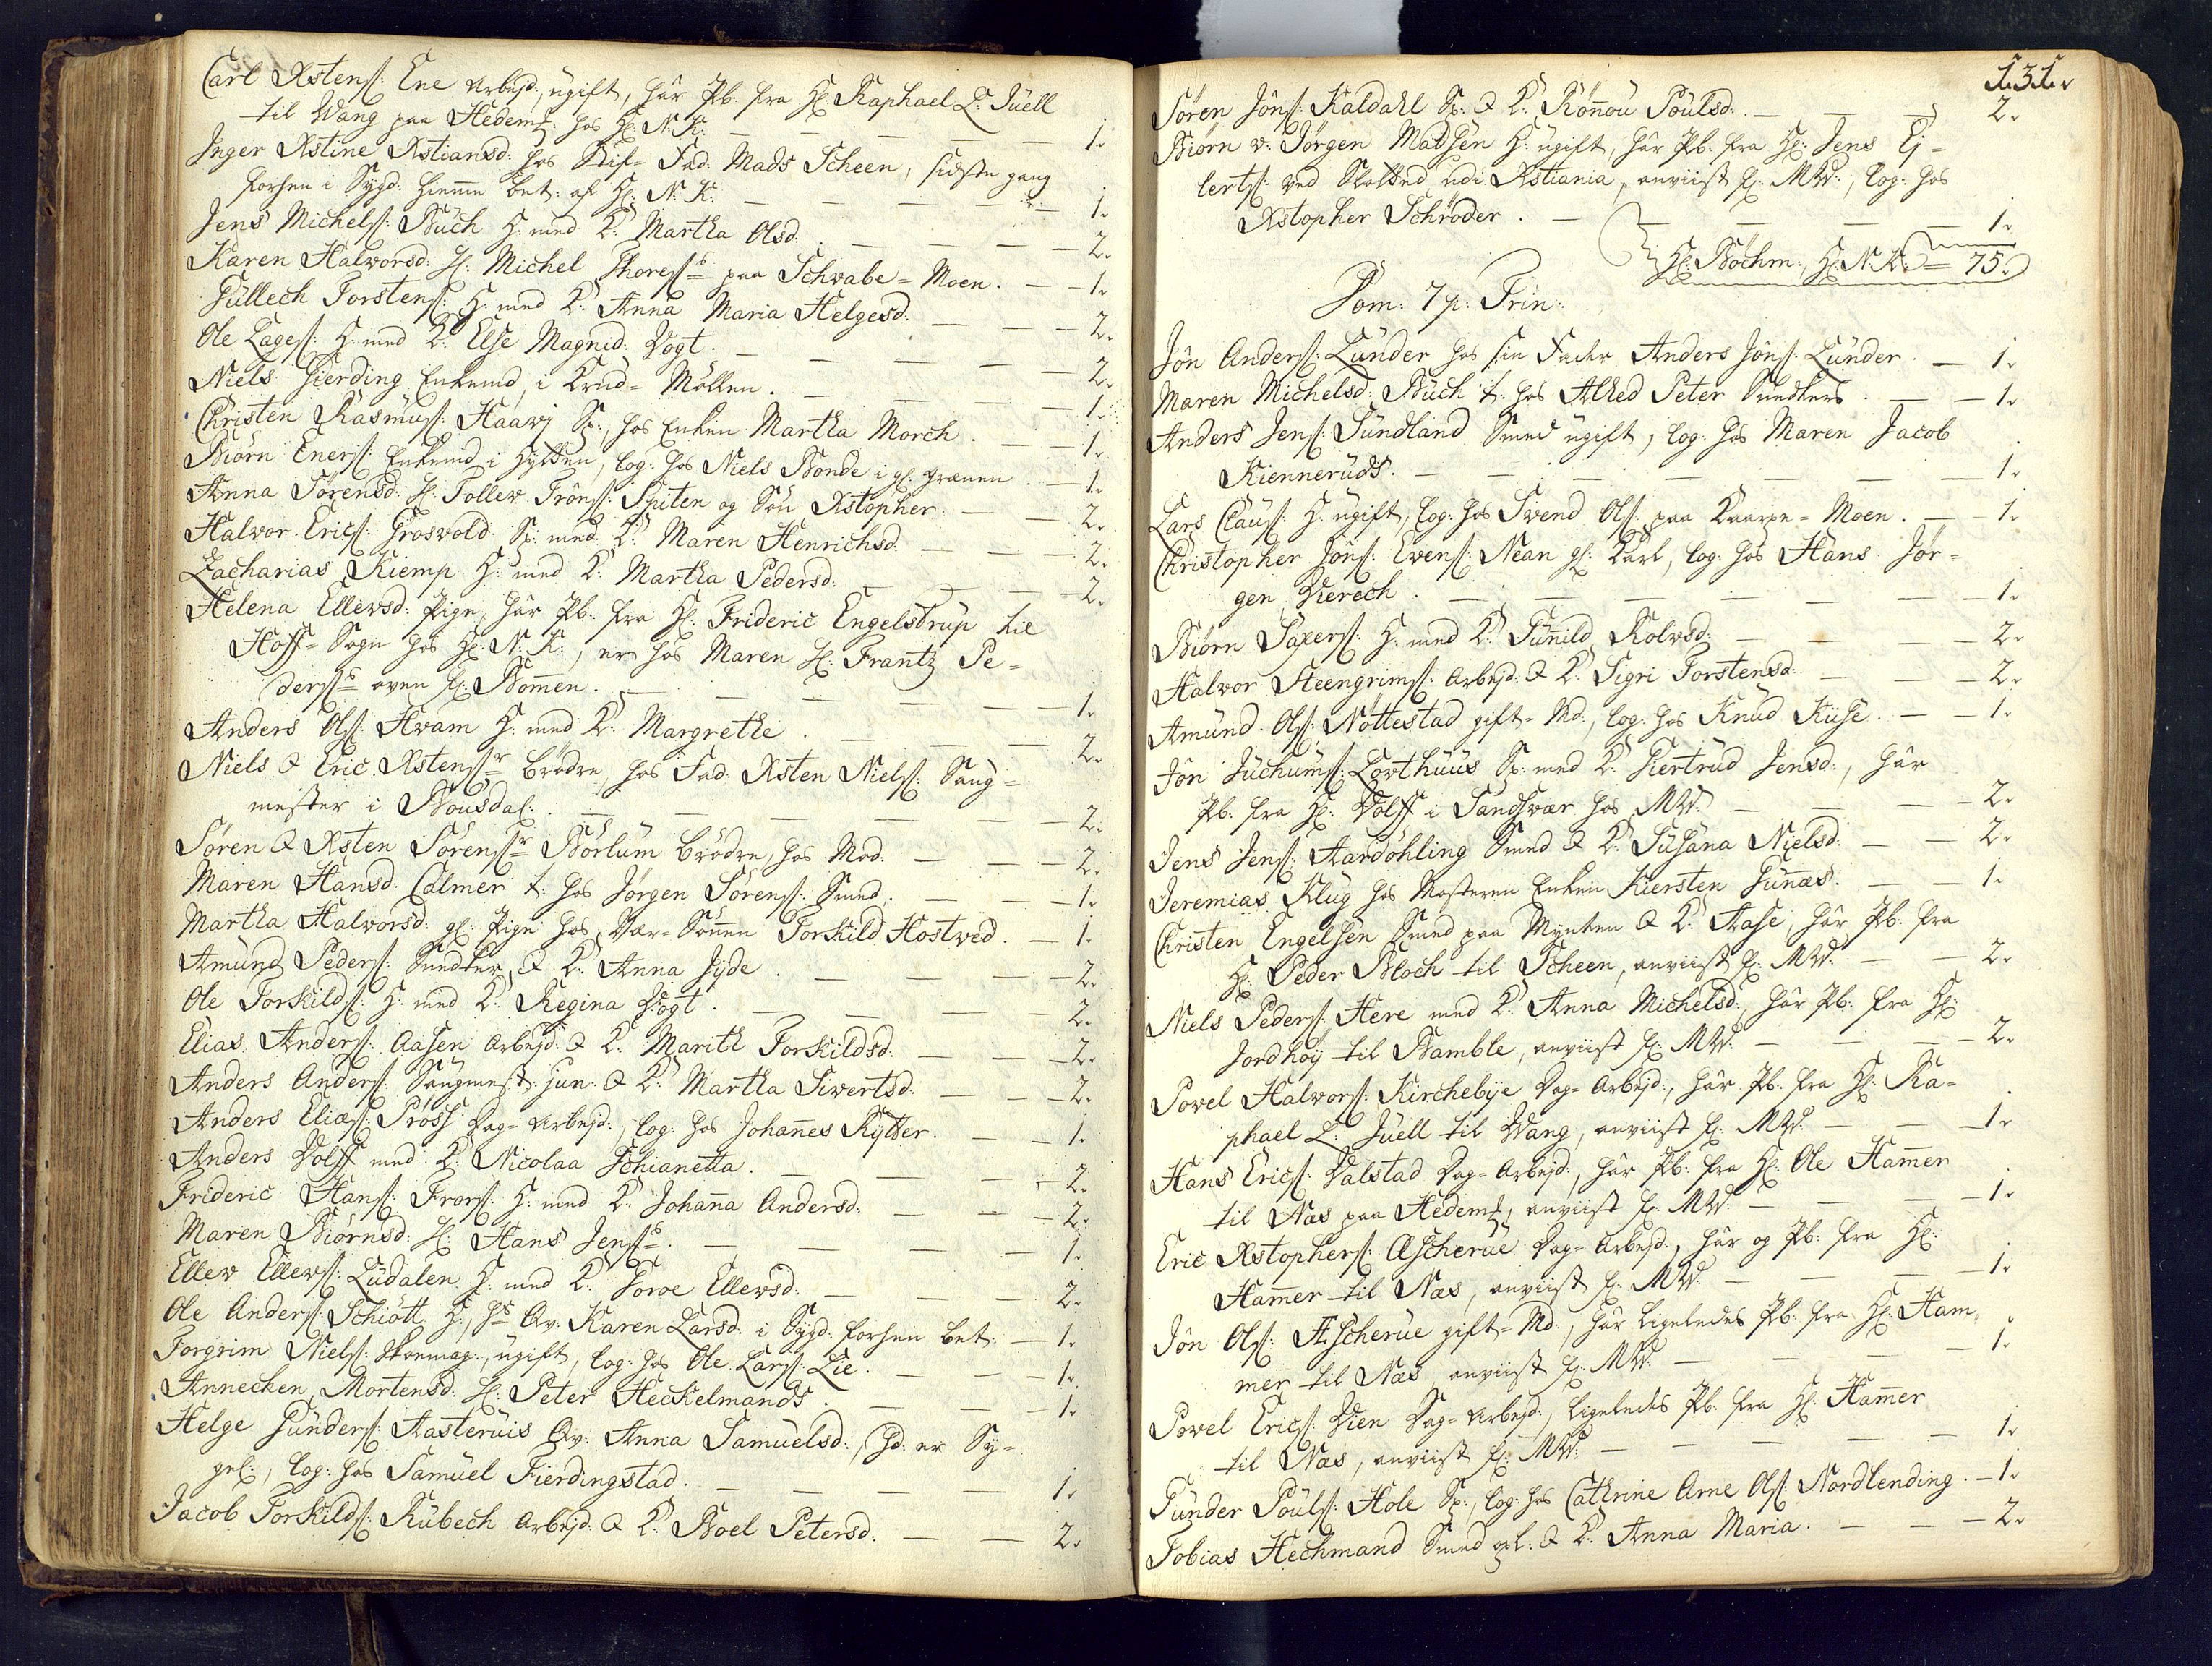 Carl Xstens: Ene Arbejd:, ugift, har Pb: fra Hl: Raphael L: Juell
til Wang paa Hedem: hos Hl: N: K: — 1.
Inger Xstine Xstiansd: hos Stif-Fad: Mads Scheen, sidste gang
forhen i Sygd: hiemme bet: af Hl: N: K: — 1.
Jens Michels: Buch H: med K: Martha Olsd: — 2.
Karen Halvorsd: Michel Thores: paa Schwabe-Moen. — 1.
Gullech Torstens: H: med K: Anna Maria Helgesd: — 2.
Ole Lages: H: med K: Else Magnid: Vogt. — 2.
Niels Gierding Enkemd, i Krud-Møllen. — 1.
Christen Rasmus: Haavj Sp:, hos Enken Martha Morch. — 1.
Biørn Eners: Enkemd i Hytten, log: hos Niels Bonde i gl: Grænen. — 1.
Anna Sørensd: Tollew Trons: Spiten og Søn Xstopher. — 2.
Halvor Erics: Groswold Sp: med K: Maren Henrichsd: — 2.
Zacharias Kiemp H: med K: Martha Pedersd: — 2.
Helena Ellewsd: Pige, har Pb: fra Hl: Frideric Engelstrup til
Hoff-Sogn hos Hl: N: K:, er hos Maren Frantz Pe-
ders: oven f: Bommen. — 1.
Anders Ols: Hvam H: med K: Margrethe. — 2.
Niels & Eric Xstens: Brødre, hos Fad: Xsten Niels: Saug-
mester i Bousdal: — 2.
Søren & Xsten Sørens: Børlum Brødre, hos Mod: — 2.
Maren Hansd: Calmer t: hos Jørgen Sørens: Smed. — 1.
Martha Halvorsd: gl: Pige hos Torkild Hostved. — 1.
Amund Peders: Snedker & K: Anna Jyde. — 2.
Ole Torkilds: H: med K: Regina Vogt. — 2.
Elias Anders: Aasen Arbejd: & K: Marith Torkildsd: — 2.
Anders Anders: Saugmest: jun: & K: Martha Siwertsd: — 2.
Anders Elias: Pross Dag-Arbejd:, log: hos Johannes Rytter. — 1.
Anders Wolff med K: Nicolaa Schianetta. — 2.
Frideric Hans: Frors: H: med K: Johanna Andersd: — 2.
Maren Biørnsd: Hans Jens: — 1.
Ellew Ellews: Ludalen H: med K: Torve Ellewsd: — 2.
Ole Anders: Schiøtt H:, Qv: Karen Larsd: i Sygd: forhen bet: — 1.
Torgrim Niels: Skoemag:, ugift, log: hos Ole Lars: Lie. — 1.
Annechen Mortensd: Peter Heckelmands. — 1.
Helge Gunders: Aasteruis Qv: Anna Samuelsd:, Hd: er Sy-
gel:, log: hos Samuel Fierdingstad. — 1.
Jacob Torkilds: Rubech Arbejd: & K: Boel Petersd: — 2.
131.
Søren Jøns: Kaldahl Sp: & K: Rønnou Poulsd: — 2.
Biørn v: Jørgen Madsen H: ugift, har Pb: fra Hl: Jens Ej-
lerts: ved Slotted udi Xstiania, anviist f: MW:, log: hos
Xstopher Schrøder. — 1.
Hl: Bøchm:, Hl: N: K: = 75.
Dom: 7 p: Trin:
Jøn Anders: Lunder hos sin Fader Anders Jøns: Lunder. — 1.
Maren Michelsd: Buch t: hos Alhed Peter Snedkers. — 1.
Anders Jens: Sundland Smed ugift, log: hos Maren Jacob
Kienneruds. — 1.
Lars Claus: H: ugift, log: hos Swend Ols: paa Kaarpe-Moen. — 1.
Christopher Jøns: Ewens: Nean gl: Karl, log: hos Hans Jør-
gen Dierech. — 1.
Biørn Saxers: H: med K: Gunild Rolwsd: — 2.
Halvor Steengrims: Arbejd: & K: Sigri Torstensd: — 2.
Amund Ols: Nøttestad gift-Md:, log: hos Knud Kuse. — 1.
Jøn Juchums: Lorthuus Sp: med K: Giertrud Jensd:, har
Pb: fra Hl: Wolff i Sandsvær hos MW: — 2.
Jens Jens: Aardøhling Smed & K: Susana Nielsd: — 2.
Jeremias Klug hos Mosteren Enken Kiersten Gunæs. — 1.
Christen Engelsen Smed paa Mynten & K: Aase, har Pb: fra
Hl: Peder Bloch til Scheen, anviist f: MW: — 2.
Niels Peders: Here med K: Anna Michelsd:, har Pb: fra Hl:
Jordhøy til Bamble, anviist f: MW: — 2.
Powel Halvors: Kirchebye Dag-Arbejd:, har Pb: fra Hl: Ra-
phael L: Juell til Wang, anviist f: MW: — 1.
Hans Erics: Dalstad Dag-Arbejd:, har Pb: fra Hl: Ole Hammer
til Næs paa Hedem:, anviist f: MW: — 1.
Eric Xstophers: Æscherue Dag-Arbejd:, har og Pb: fra Hl:
Hammer til Næs, anviist f: MW: — 1.
Jøn Ols: Æscherue gift-Md:, har ligeledes Pb: fra Hl: Ham-
mer til Næs, anviist f: MW: — 1.
Powel Erics: Vien Dag-Arbejd:, ligeledes Pb: fra Hl: Hammer
til Næs, anviist f: MW: — 1.
Gunder Pouls: Hole Sp:, log: hos Cathrine Arne Ols: Nordlending. — 1.
Tobias Hechmand Smed & K: Anna Maria. — 2.